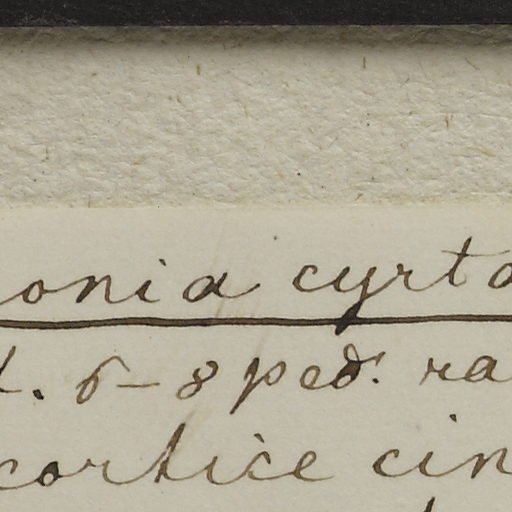 onia cyrta
t. 6-8 ped. ra
cortice cin